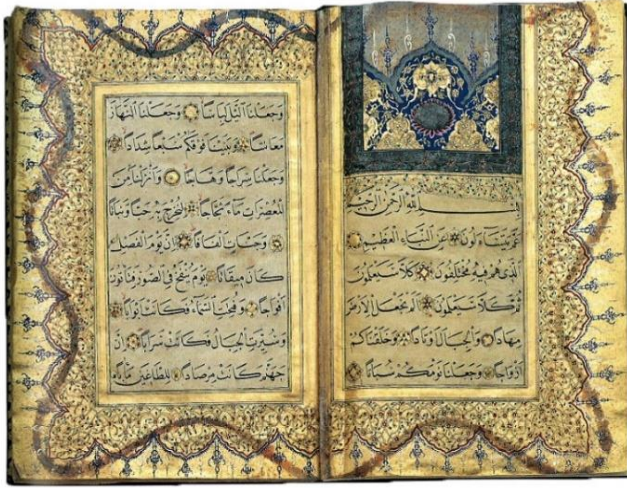 بسم الله الرحمن الرحيم
عَمَّ يَتَسَاءَلُونَ عَنِ النَّبَإِ الْعَظِيمِ
الَّذِي هُمْ فِيهِ مُخْتَلِفُونَ كَلَّا سَيَعْلَمُونَ
ثُمَّ كَلَّا سَيَعْلَمُونَ أَلَمْ نَجْعَلِ الْأَرْضَ
مِهَادًا وَالْجِبَالَ أَوْتَادًا وَخَلَقْنَاكُمْ
أَزْوَاجًا وَجَعَلْنَا نَوْمَكُمْ سُبَاتًا
وَجَعَلْنَا اللَّيْلَ لِبَاسًا وَجَعَلْنَا النَّهَارَ
مَعَاشًا وَبَنَيْنَا فَوْقَكُمْ سَبْعًا شِدَادًا
وَجَعَلْنَا سِرَاجًا وَهَّاجًا وَأَنْزَلْنَا مِنَ
الْمُعْصِرَاتِ مَاءً ثَجَّاجًا لِنُخْرِجَ بِهِ حَبًّا وَنَبَاتًا
وَجَنَّاتٍ أَلْفَافًا إِنَّ يَوْمَ الْفَصْلِ
كَانَ مِيقَاتًا يَوْمَ يُنْفَخُ فِي الصُّورِ فَتَأْتُونَ
أَفْوَاجًا وَفُتِحَتِ السَّمَاءُ فَكَانَتْ أَبْوَابًا
وَسُيِّرَتِ الْجِبَالُ فَكَانَتْ سَرَابًا إِنَّ
جَهَنَّمَ كَانَتْ مِرْصَادًا لِلطَّاغِينَ مَآبًا